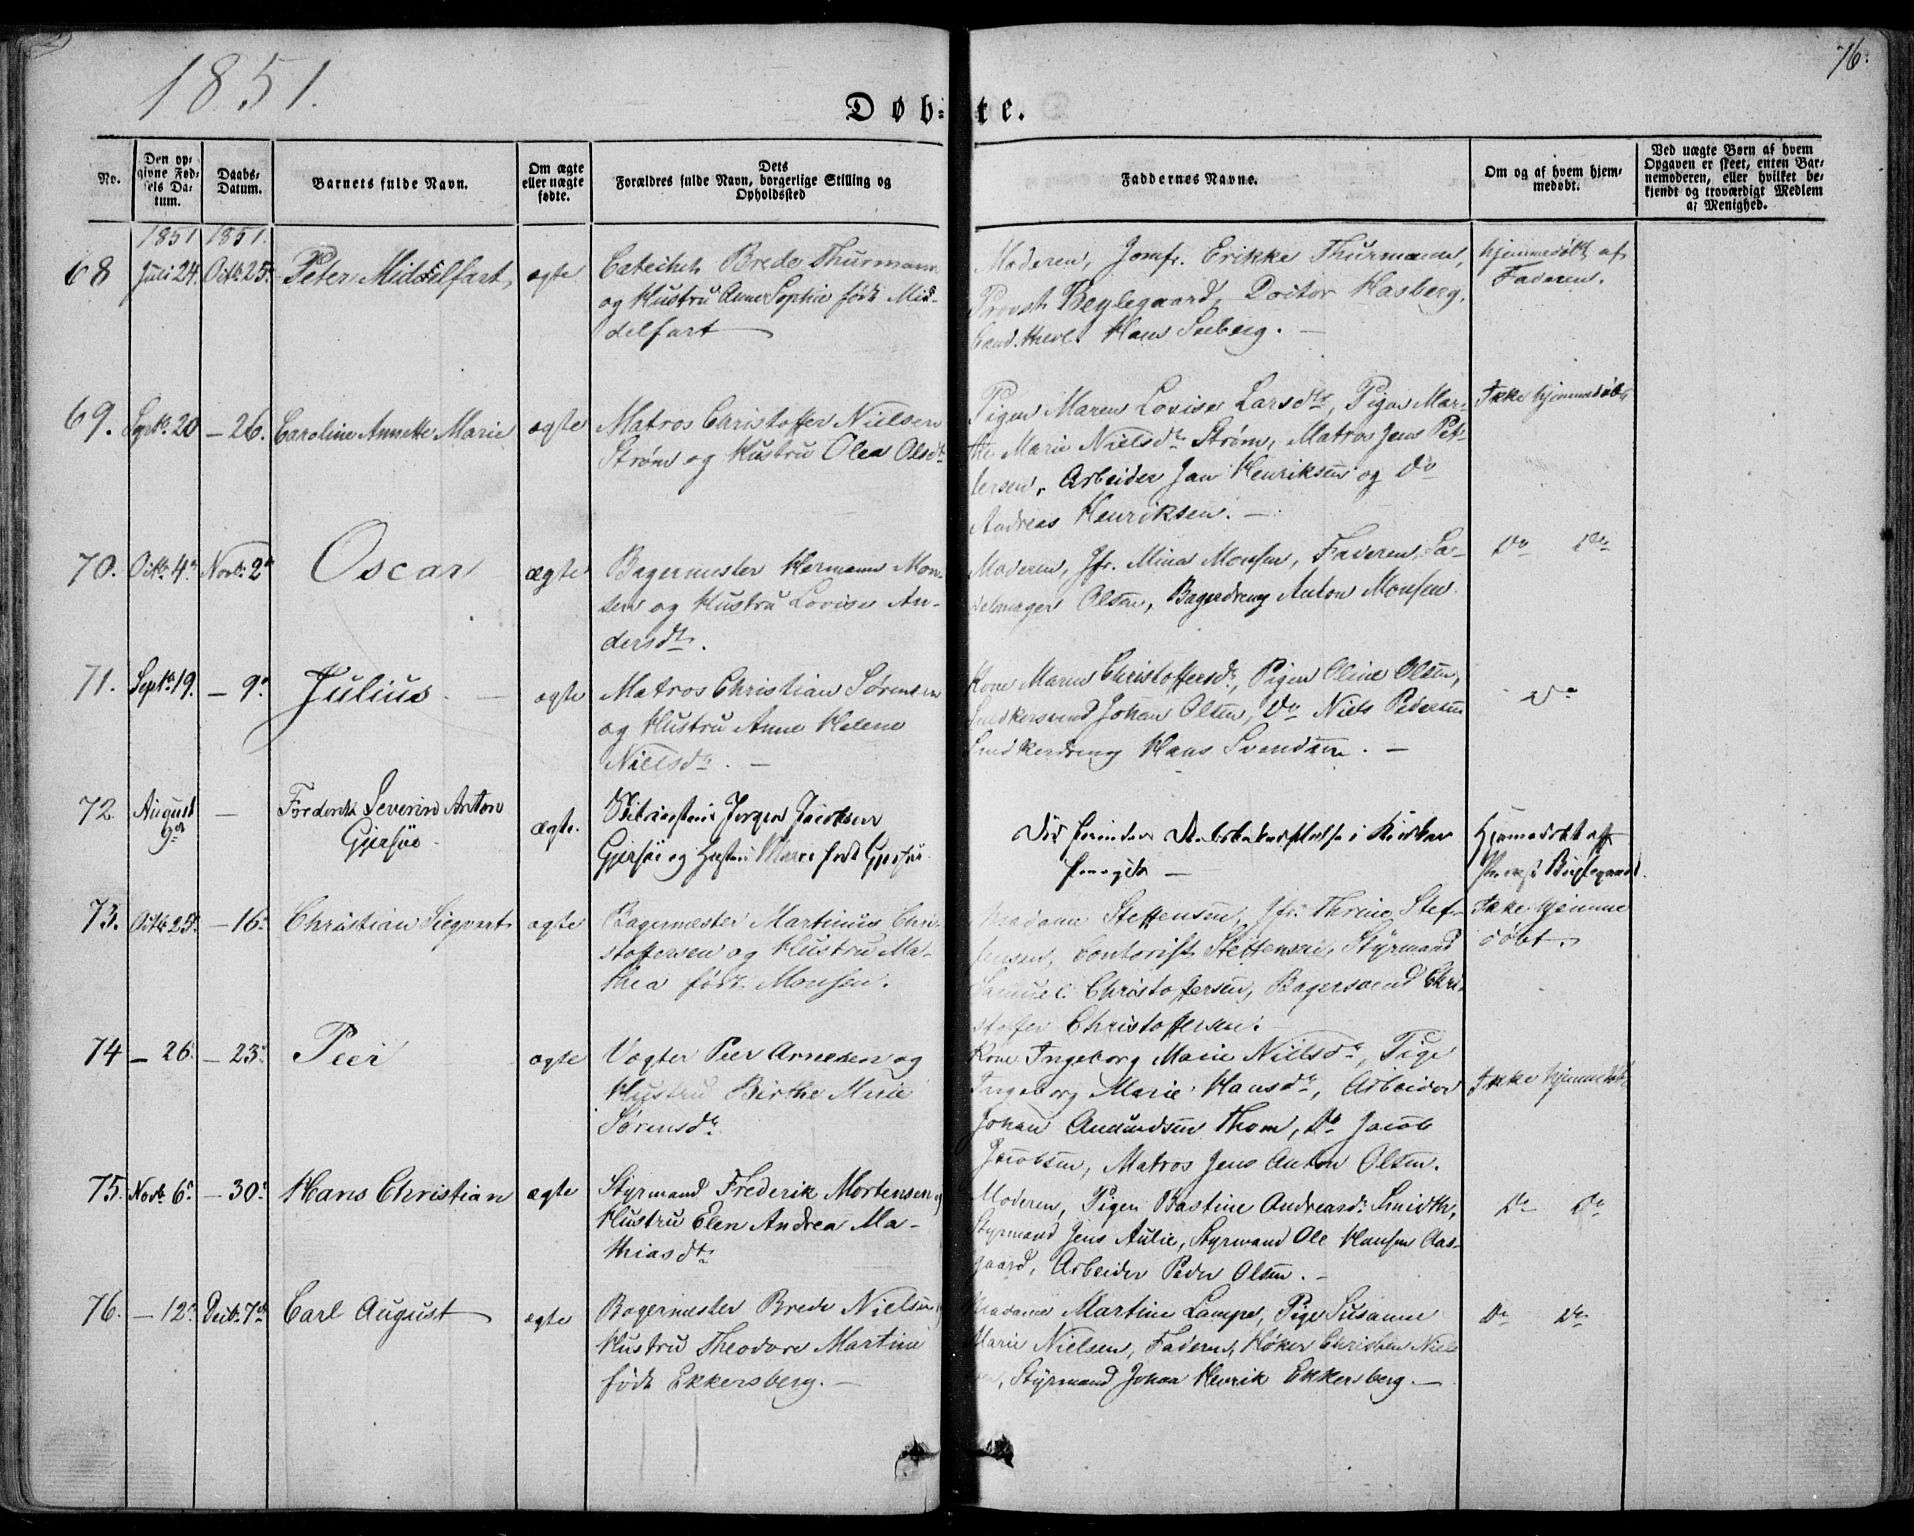 1851.
76.
Døb-
te.
No.
Den op-
givne Fød-
sels Da-
tum.
Daabs-
Datum.
Barnets fulde Navn.
Om ægte
eller uægte
fødte.
Dets
Forældres fulde Navn, borgerlige Stilling og
Opholdssted
Faddernes Navne.
Om og af hvem hjem-
medøbt.
Ved uægte Børn af hvem
Opgaven er skeet, enten Bar-
nemoderen, eller hvilket be-
kjendt og troværdigt Medlem
af Menighed.
1851 1851.
68 Juli 24. Octbr 25. Peter Middelfart ægte Catechet Brede Thurmann
og Hustru Anne Sophie født Mid-
delfart
Moderen, Jomfr. Erikke Thurmann,
Provst Beylegaard, Doctor Hasberg,
Cand. theol. Hans Seeberg. —
Hjemmedøbt af
Faderen.
69. Septbr 20 — 26. Caroline Annette Marie ægte Matros Christoffer Nielsen
Strøm og Hustru Olea Olsdtr
Pigen Maren Lovise Larsdtr, Pigen Mar-
the Marie Nielsdtr Strøm, Matros Jens Pet-
tersen, Arbeider Jan Henriksen og Do
Andreas Henriksen. —
Ikke hjemmedøbt
70. Octbr. 4de Novbr. 2den Oscar ægte Bagermester Hermann Mon-
sen og Hustru Lovise An-
dersdtr.
Moderen, Jfr. Mina Monsen, Faderen, Sa-
delmager Olsen, Bagerdreng Anton Monsen.
Do Do
71. Septbr. 19. — 9de Julius. — ægte Matros Christian Sørensen
og Hustru Anne Helene
Nielsdtr. —
Kone Maren Christoffersdtr, Pigen Oline Olsen,
Snedkersvend Johan Olsen, Do Niels Pedersen
Snedkerdreng Hans Svendsen. —
Do
72. August
9de — Severin Anton
Gjersøe. ægte. Jørgen Jacobsen
Gjersøe og Hustru Maren født Gjersøe.
i Kirken
—
Hjemmedøbt af
Provst Beylegaard.
73. Octbr 25. — 16. Christian Siegvart ægte Bagermester Martinus Chri-
stoffersen og Hustru Ma-
thea født Monsen.
Madame Steffensen, Jfr. Thrine Stef-
fensen, Contorist Steffensen, Styrmand
Samuel Christoffersen, Bagersvend Chri-
stoffer Christoffersen.
Ikke hjemme
døbt.
74 — 26. — 23. Peer ægte Vogter Peer Arnesen og
Hustru Birthe Marie
Sørensdtr.
Kone Ingeborg Marie Nielsdtr, Pige
Ingeborg Marie Hansdtr, Arbeider
Johan Amundsen Thom, Do Jacob
Jacobsen, Matros Jens Anton Olsen.
Ikke hjemmedøbt
75. Novbr. 6. — 30. Hans Christian ægte Styrmand Frederik Mortensen og
Hustru Elen Andrea Ma-
thiasdtr
Moderen, Pigen Bastine Andreasdtr Smidth,
Styrmand Jens Aulie, Styrmand Ole Hansen Aas-
gaard, Arbeider Peder Olsen. —
Do Do
76. — 12. Decbr. 7de Carl August ægte Bagermester Brede Nielsen og
Hustru Theodore Martine
født Ekkersberg. —
Madame Martine Lampe, Pige Susanne
Marie Nielsen, Faderen, Høker Christen Niel-
sen, Styrmand Johan Henrik Ekkersberg. —
Do Do